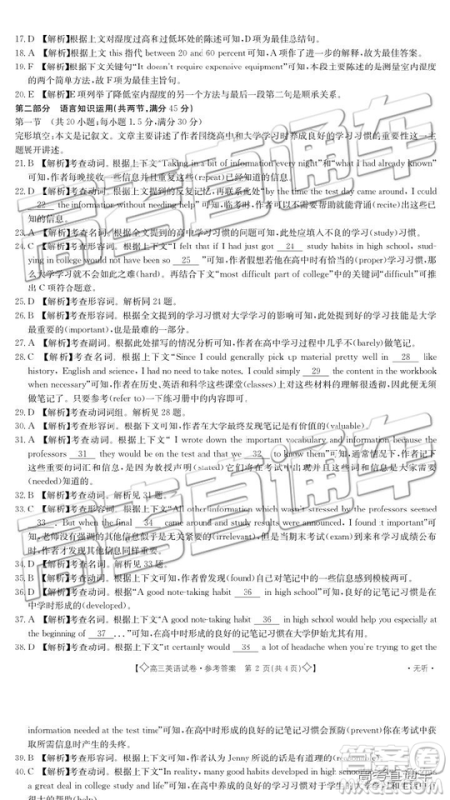 17. D 【解析】根据上文对湿度过高和过低坏处的陈述可知,D项为最佳总结句。
18. A 【解析】根据上文 this 指代 between 20 and 60 percent 可知,A项作了进一步的解释,故为最佳答案。
19. F 【解析】根据下文关键句“It doesn't require expensive equipment”可知,本段主要陈述的是测量室内湿度
的两个简单又便宜的方法,故F项正确。
20. E 【解析】根据上一句和最后一段第二句是示联关系可知,E项最佳。
第二部分 语言知识运用(共两节,满分45分)
第一节 (共20小题;每小题1.5分,满分30分)
完形填空:本文是记叙文。文章主要讲述了作者围绕高中和大学学习时养成良好的学习习惯的重要性这一主
题展开讲述。
21. B 【解析】考查动词。根据上文“Taking in a bit of information every night”和“what I had already known”
可知,作者每晚接收一些信息并且重复这些信息。
22. D 【解析】考查动词。根据上文提到的反复记忆,再联系下文“by time the test day came around, I could
22 the information without needing help”可知,临考时,作者可以不需要帮助就能背诵(recite)出这些已
知的信息。
23. A 【解析】考查名词。根据全文提到的高中学习习惯的问题可知,此处应填入不良的学习(study)习惯。
24. C 【解析】考查形容词。根据上文“I felt that if I had just got 24 study habits in high school, stud-
ying in college would not have been so 25 ”可知,作者假想若他在高中时有恰当的(proper)学习习惯,那
么大学学习就不会如此之难(hard)。再结合下文“most difficult part of college”中的关键词“difficult”可推
出C项符合题意。
25. D 【解析】考查形容词。解析同24题。
26. D 【解析】考查形容词。根据全文提到的学习习惯对大学学习的影响可知,此处提到的好的技能是大学
最重要的(important),也是最难的一部分。
27. A 【解析】考查副词。根据此处描写的情况分析可知,作者在高中学习过程中几乎不(barely)做笔记。
28. C 【解析】考查名词。根据下文“Since I could generally pick up material pretty well in 28 like
history, English and science, I had no need to take notes”和“I could simply 29 the content in the workbook
when necessary”可知,作者在历史、英语和科学这些课堂(classes)上对这些材料的理解都很透彻,因此便无须
做笔记了。只要参考(refer to)一下练习册中的内容即可。
29. D 【解析】考查动词词组。解析见28题。
30. D 【解析】考查形容词。作者在大学最终发现笔记是有价值的(valuable)。
31. A 【解析】考查动词。根据上文“I wrote down the important vocabulary and information because the
professors 31 they would be on the test and that we 32 to know them”可知,通常情况下,作者记下
这些重要的词汇和信息,因为教授声明(stated)它们将在考试中出现并且这些词汇和信息是大家需要
(needed)知道的。
32. B 【解析】考查动词。解析见31题。
33. C 【解析】考查形容词。根据上下文“All other information which wasn't stressed by the professors seemed
33 . But when the final 34 came around and study results were announced, I found it important”可
知,老师没有强调的其他信息似乎是无关紧要的(irrelevant),但是当期末考试(exam)到来和学习成果
公布时,作者发现它很重要。
34. D 【解析】考查名词。解析见33题。
35. D 【解析】考查动词。根据上下文可知,作者曾发现(found)自己对笔记中的一些信息感到模棱两可。
36. D 【解析】考查动词。根据上下文“A good note-taking habit 36 in high school”可知,良好的习惯是在
中学时形成的(developed)。
37. A 【解析】考查名词。根据上下文“A good note-taking habit in high school would help you especially at
the beginning of 37 ...”可知,高中时形成的良好的习惯有助于作者在大学伊始尤其有用。
38. D 【解析】考查动词。根据上文“it certainly would 38 a lot of headache when you're looking to get the
◇高三英语试卷·参考答案 第2页(共4页)◇ ·天昕·
information needed at the test time”可知,在高中时形成的良好的记笔记习惯会预防(prevent)你在考试需要
所需信息时产生的头疼。
39. B 【解析】考查形容词。根据上下文可知,作者认为 Jenny 所说的话是有道理的(reasonable)。
40. C 【解析】考查动词。根据上文“In reality, many good habits developed in high school
a great deal in college studies and life”可知,在高中养成的良好的学习习惯